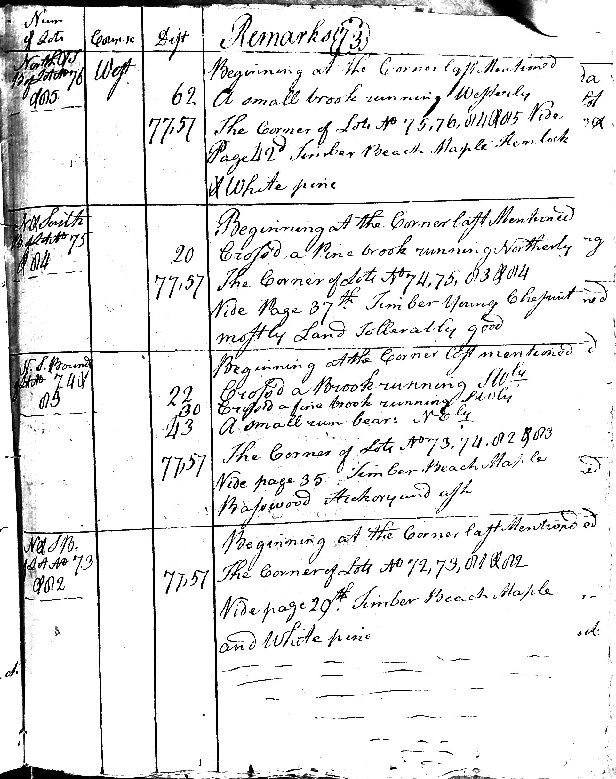 Num
of Lots Course Dist Remarks (73)
North & S
B of Lot No 76
& 85 West
Beginning at the Corner last Mentioned
62 A small brook running Westerly
77,57 The Corner of Lots No 75,76,84 & 85 Vide
Page 42d Timber Beach Maple Hemlock
& White pine
N & South
B of Lot No 75
& 84
Beginning at the Corner last Mentioned
20 Crossd a Fine brook running Northerly
77,57 The Corner of Lots No 74,75,83 & 84
Vide Page 37th Timber Young Chesnut
mostly Land Tollerably good
N. S. Bound
Lot No 74 &
85
Beginning at the Corner last mentioned
22 Crossd a Brook running SWly
30 Crossd a fine brook running SWly
43 A small run bears NEly
77,57 The Corner of Lots No 73,74,82 & 83
Vide page 35 Timber Beach Maple
Basswood Hickory and ash
N & S B.
Lot No 73
& 82
Beginning at the Corner last Mentioned
77,57 The Corner of Lots No 72,73,81 & 82
Vide page 29th Timber Beach Maple
and White pine